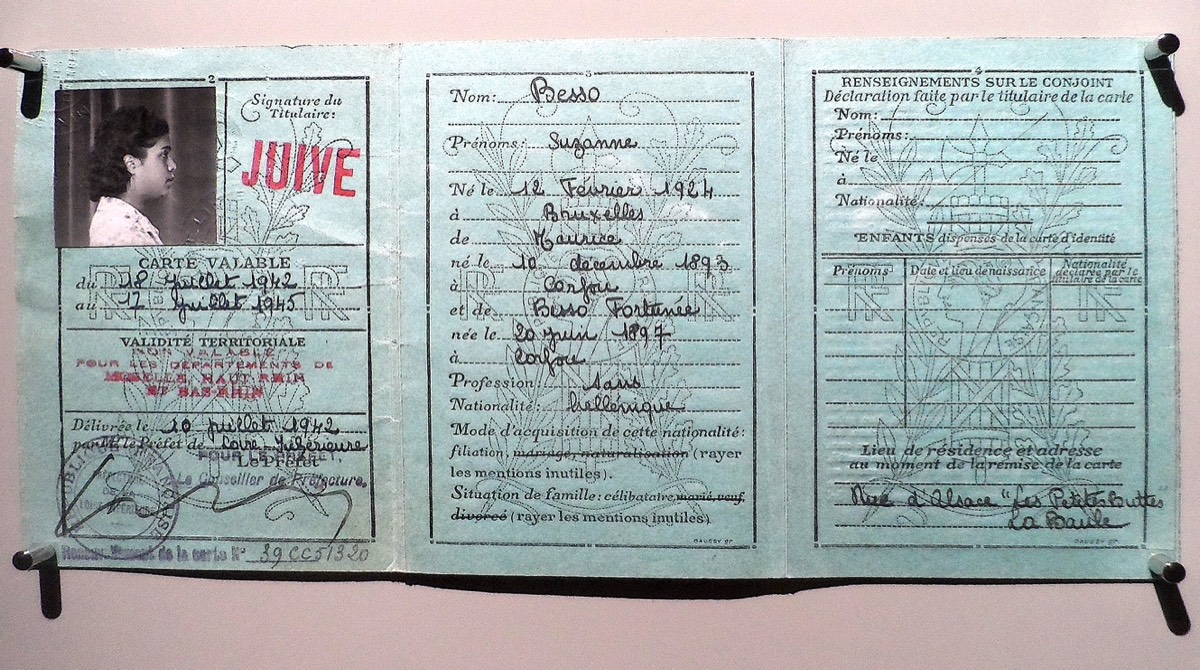 2
Signature du
Titulaire:
JUIVE
CARTE VALABLE
du 18 Juillet 1942
au 17 Juillet 1945
VALIDITÉ TERRITORIALE
NON VALABLE
POUR LES DÉPARTEMENTS DE
MOSELLE HAUT-RHIN
ET BAS-RHIN
Délivrée le 10 juillet 1942
par le Préfet de Loire Inférieure
POUR LE PRÉFET,
Le Préfet
Le Conseiller de Préfecture.
de la carte N° 39CC51320
3
Nom: Besso
Prénoms: Suzanne
Né le 12 Février 1924
à Bruxelles
de Maurice
né le 10 décembre 1893
à Corfou
et de Besso Fortunée
née le 20 juin 1897
à Corfou
Profession: sans
Nationalité: hellénique
Mode d'acquisition de cette nationalité:
filiation, mariage, naturalisation (rayer
les mentions inutiles).
Situation de famille: célibataire, marié, veuf,
divorcé (rayer les mentions inutiles).
4
RENSEIGNEMENTS SUR LE CONJOINT
Déclaration faite par le titulaire de la carte
Nom:
Prénoms:
Né le
à
Nationalité:
ENFANTS dispensés de la carte d'identité
Prénoms Date et lieu de naissance Nationalité
déclarée par le
titulaire de la carte
RF RF RF RF
Lieu de résidence et adresse
au moment de la remise de la carte
Rue d'Alsace "Les Petites Buttes
La Baule